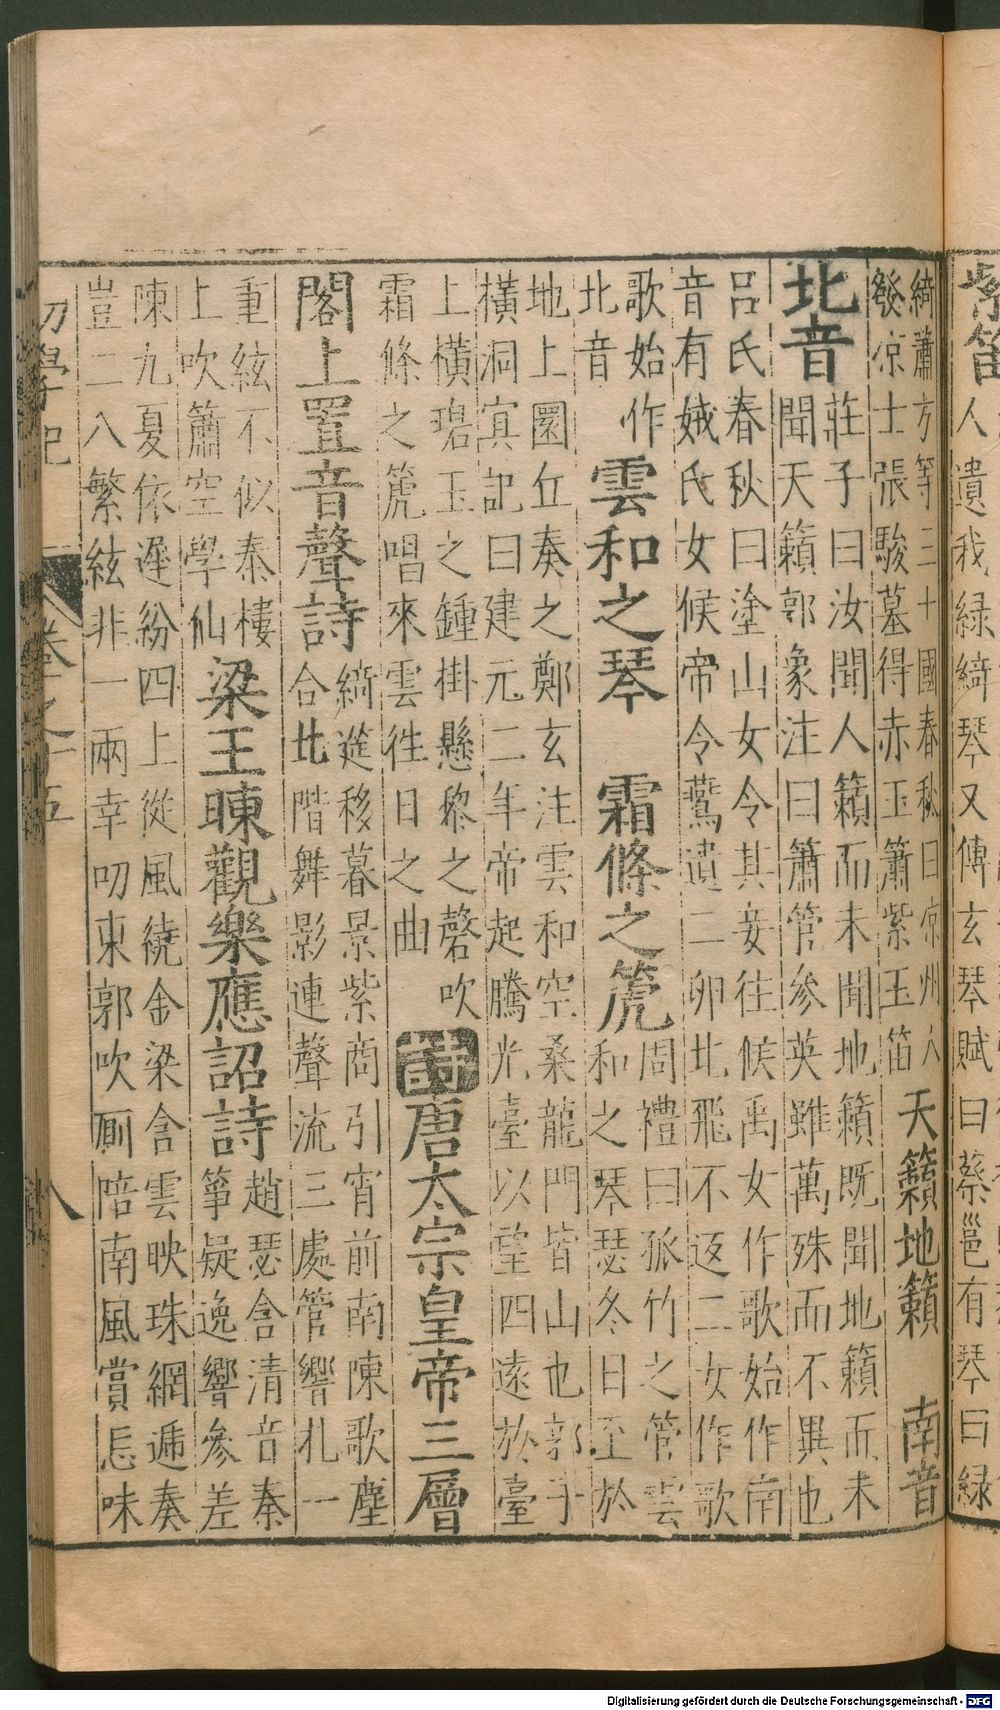 紫笛
人遺我緑綺琴又傅玄琴賦曰蔡邕有琴曰緑
綺蕭方等三十國春秋曰凉州人
發凉士張駿墓得赤玉簫紫玉笛
天籟地籟 南音
北音
莊子曰汝聞人籟而未聞地籟既聞地籟而未
聞天籟郭象注曰簫管參英雖萬殊而不異也
呂氏春秋曰塗山女令其妾往候禹女作歌始作南
音有娀氏女候帝令鷰遺二卵北飛不返二女作歌
歌始作
北音
雲和之琴 霜條之箎
周禮曰孤竹之管雲
和之琴瑟冬日至於
地上圜丘奏之鄭玄注雲和空桑龍門皆山也郭子
橫洞㝠記曰建元二年帝起騰光臺以望四遠於臺
上橫碧玉之鍾掛懸黎之磬吹
霜條之箎唱來雲徃日之曲
詩 唐太宗皇帝三層
閣上置音聲詩
綺筵移暮景紫商引宵前南陳歌塵
合北階舞影連聲流三處管響扎一
重絃不似秦樓
上吹簫空學仙
梁王暕觀樂應詔詩
趙瑟含清音秦
箏疑逸響參差
陳九夏依遲紛四上從風繞金梁含雲映珠網遞奏
豈二八繁絃非一兩幸叨東郭吹厠陪南風賞忘味
初學記 卷之十五 八
Digitalisierung gefördert durch die Deutsche Forschungsgemeinschaft - DFG